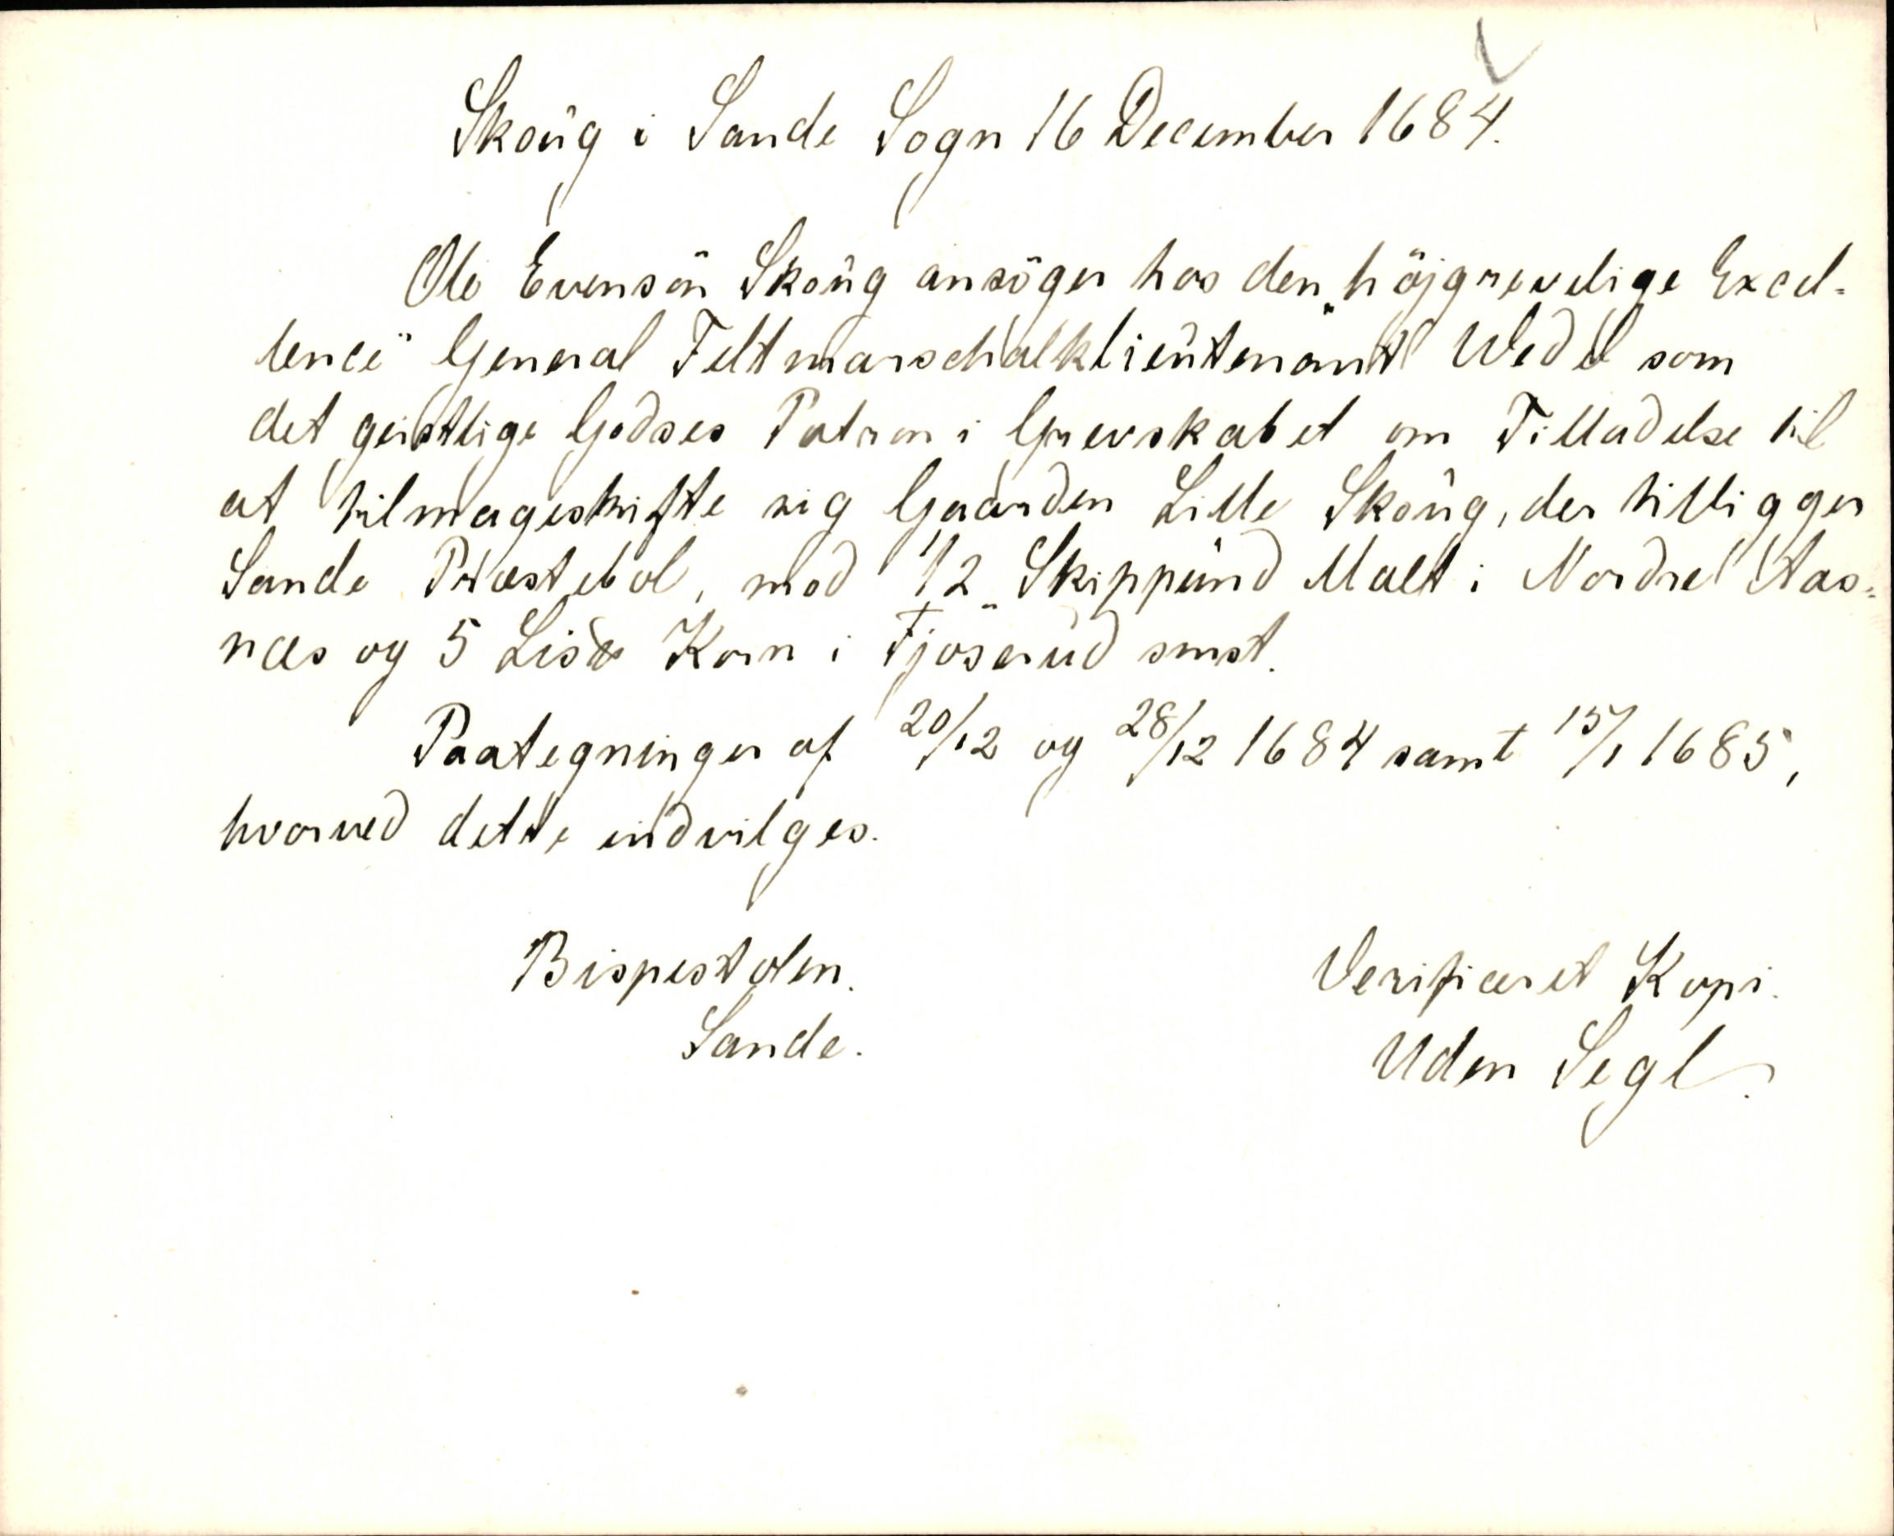 Skoug i Sande Sogn 16 December 1684.
Ole Evensön Skoug ansöger hos den „höjgrevelige Excel-
lence" General Feltmarschalklieutenant Wedel som
det geistlige Godses Patron i Grevskabet om Tilladelse til
at tilmageskifte sig Gaarden Lille Skoug, der tilligger
Sande Præstebol, mod 1/2 Skippund Malt i Nordre Aas-
næs og 5 Lis℔ Korn i Fjøserud smst.
Paategninger af 20/12 og 28/12 1684 samt 15/1 1685,
hvorved dette indvilges.
Bispestolen.
Verificeret Kopi.
Sande.
Uden Segl.